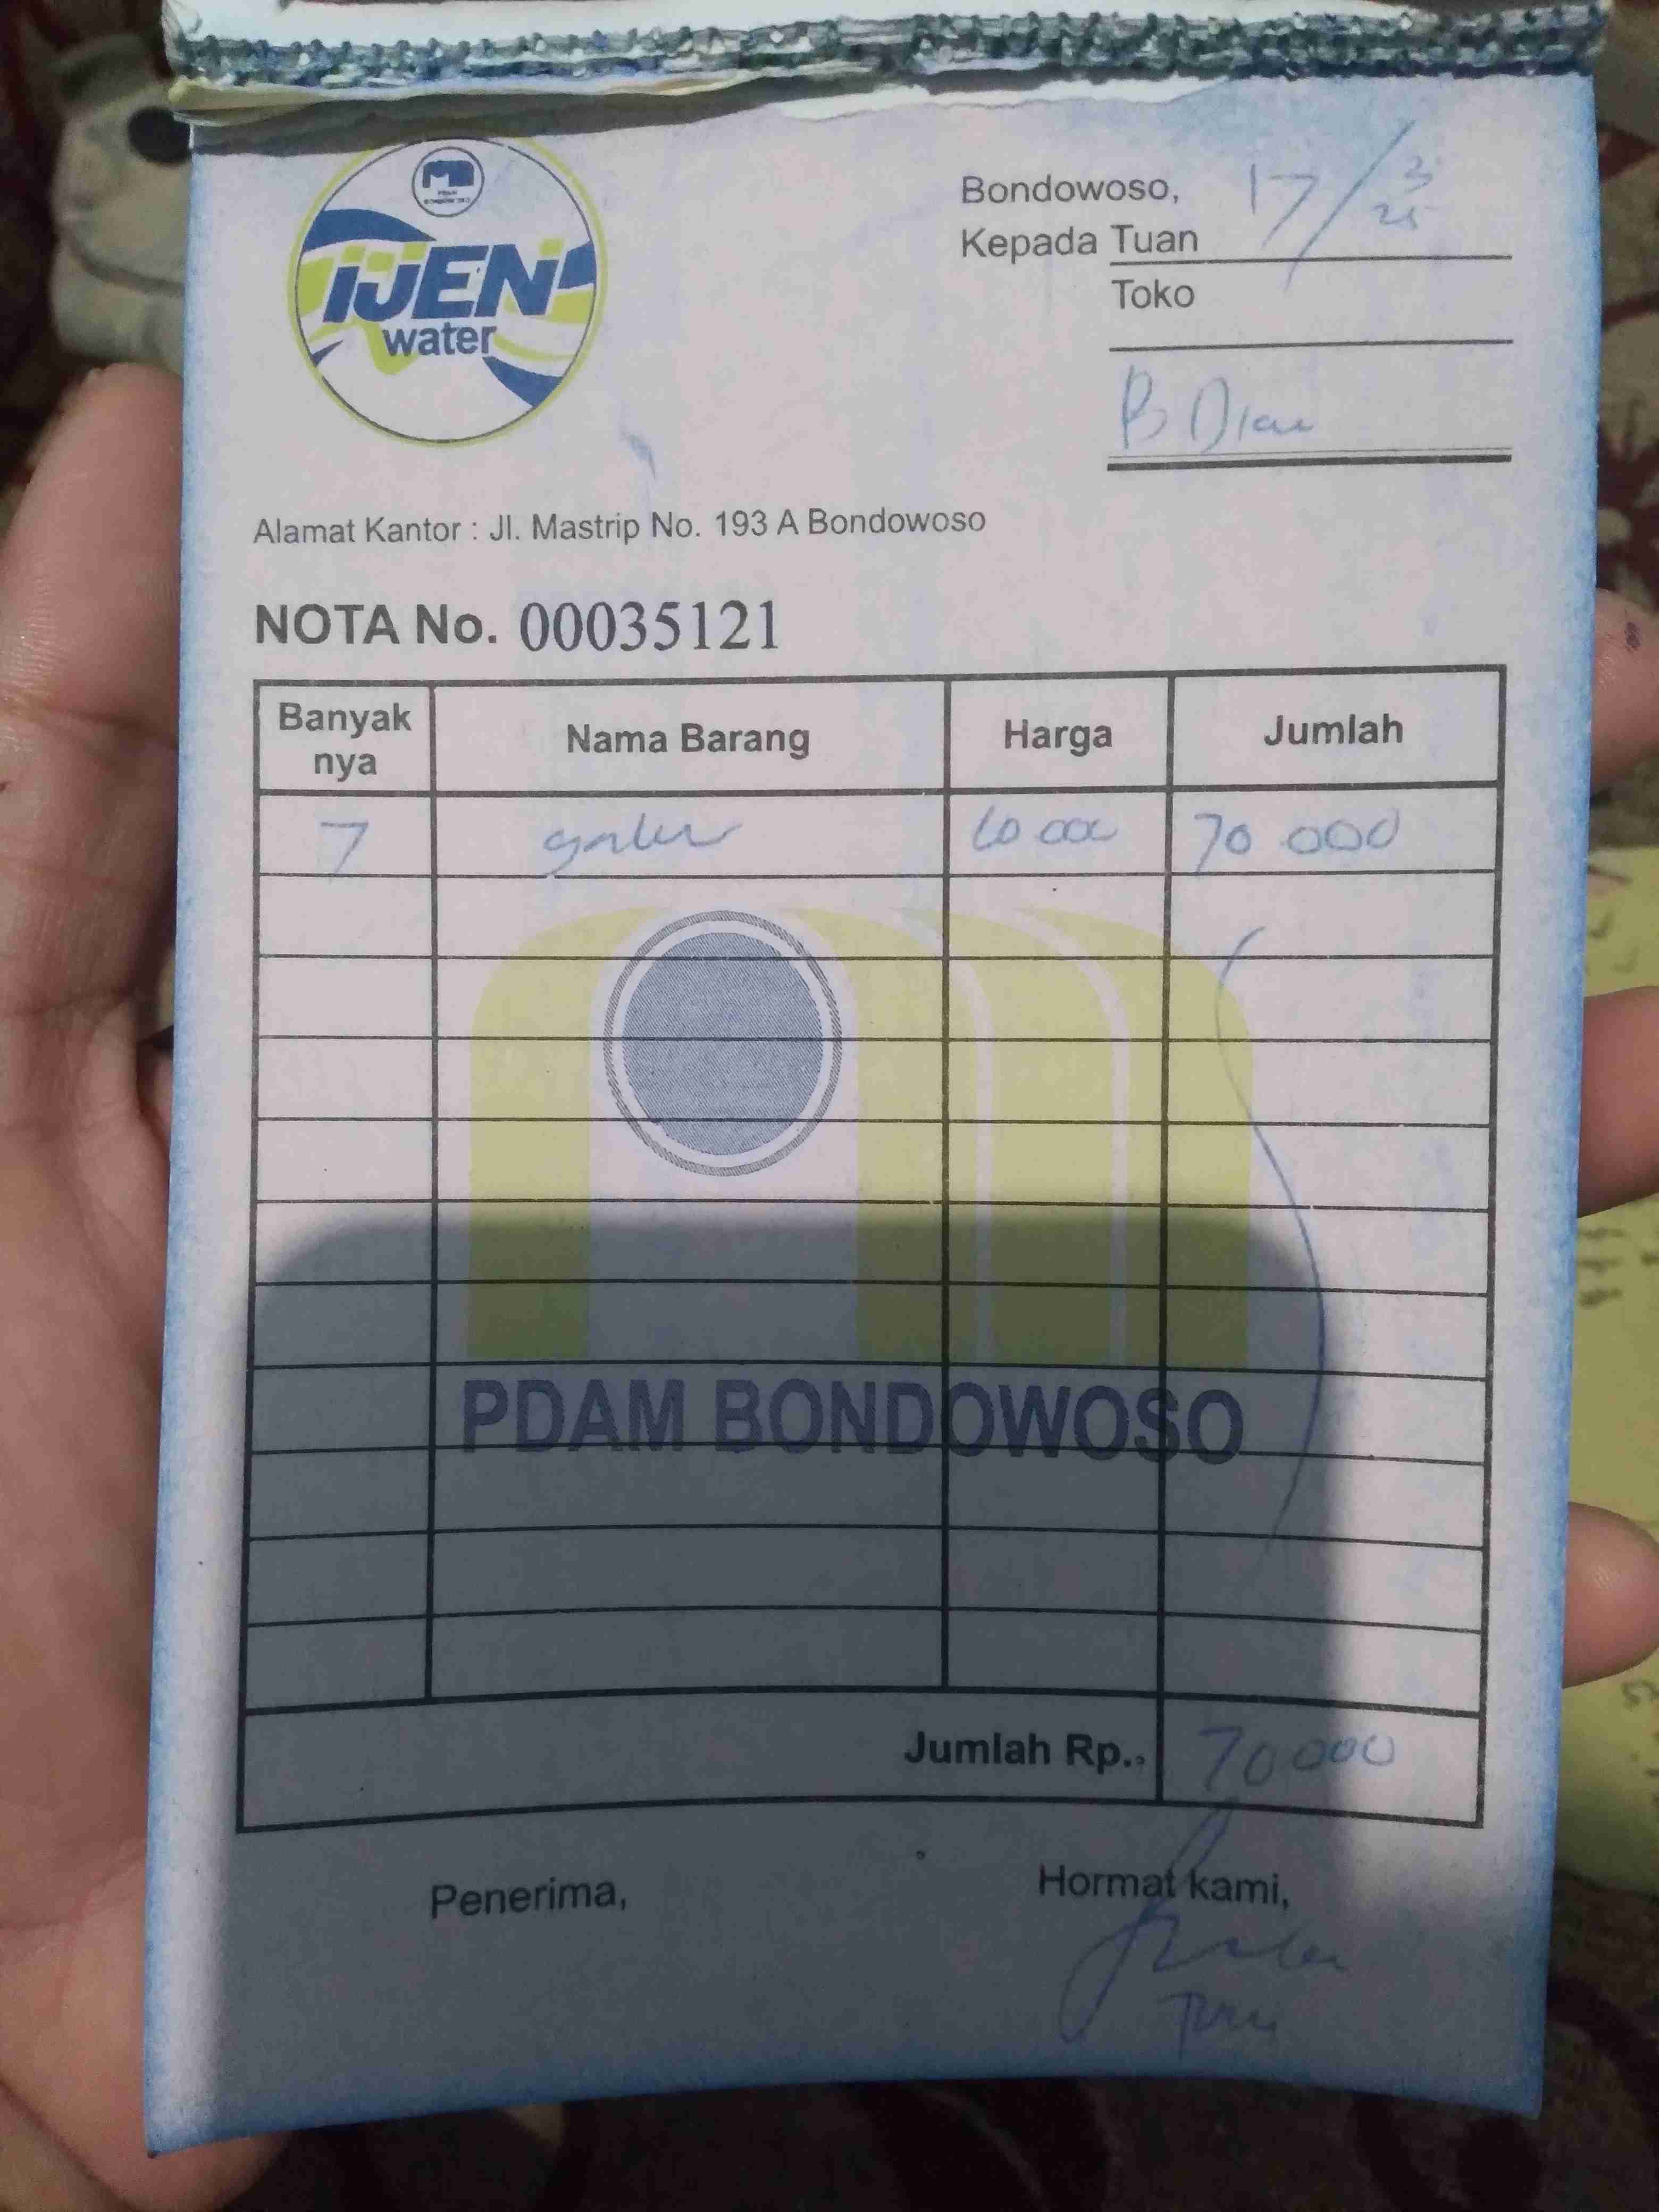 IJEN
water
Bondowoso, 17/3 25
Kepada Tuan
Toko
B Dian
Alamat Kantor : Jl. Mastrip No. 193 A Bondowoso
NOTA No. 00035121
Banyak nya Nama Barang Harga Jumlah
7 galon 10 000 70 000
PDAM BONDOWOSO
Jumlah Rp.. 70 000
Penerima, Hormat kami,